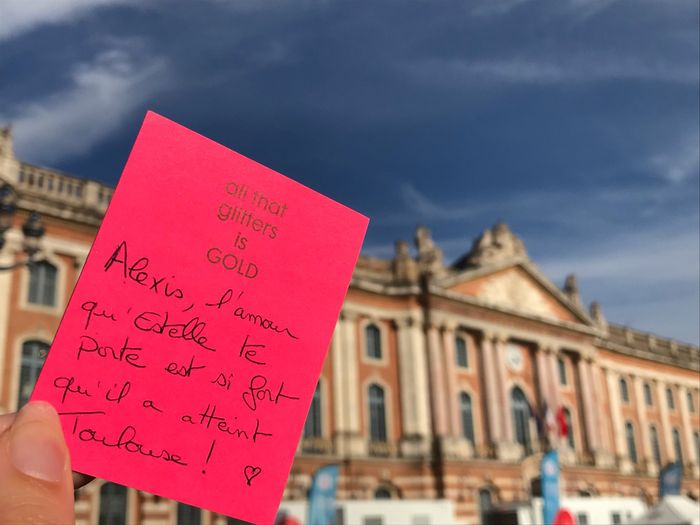 all that
glitters
is
GOLD
Alexis, l'amour
qu'Estelle te
porte est si fort
qu'il a atteint
Toulouse ! ♡